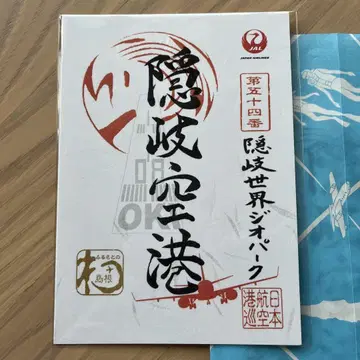 JAL
JAPAN AIRLINES
第五十四番
隠岐世界ジオパーク
隠岐空港
OKI
ふるさとの
島根
日本
航空
港巡